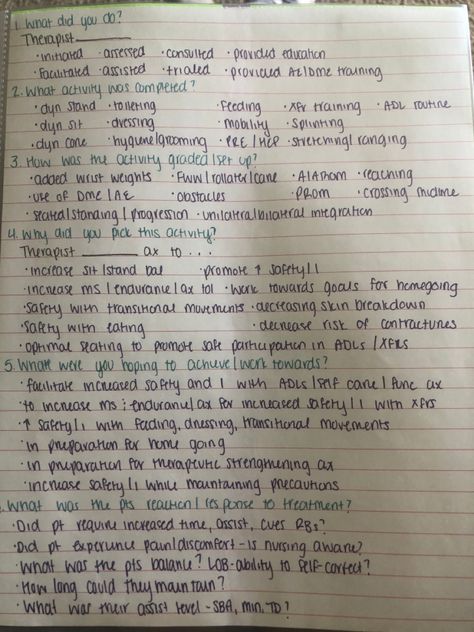 1. What did you do?
Therapist
• initiated • assessed • consulted • provided education
• facilitated • assisted • trialed • provided AE/DME training
2. What activity was completed?
• dyn stand • toileting • feeding • xfr training • ADL routine
• dyn sit • dressing • mobility • splinting
• dyn cone • hygiene/grooming • PRE/HEP • stretching/ranging
3. How was the activity graded/set up?
• added wrist weights • FWW/rollator/cane • A/AAROM • reaching
• use of DME/AE • obstacles • PROM • crossing midline
• seated/standing/progression • unilateral/bilateral integration
4. Why did you pick this activity?
Therapist ax to...
• increase sit/stand bal • promote ↑ safety/I
• increase ms/endurance/ax tol • work towards goals for homegoing
• safety with transitional movements • decreasing skin breakdown
• safety with eating • decrease risk of contractures
• optimal seating to promote safe participation in ADLs/XFRs
5. What were you hoping to achieve/work towards?
• facilitate increased safety and I with ADLs/self care/func ax
• to increase ms & endurance/ax for increased safety/I with xfrs
• ↑ safety/I with feeding, dressing, transitional movements
• in preparation for home going
• in preparation for therapeutic strengthening ax
• increase safety/I while maintaining precautions
What was the pts reaction/response to treatment?
• Did pt require increased time, assist, cues RBs?
• Did pt experience pain/discomfort - is nursing aware?
• What was the pts balance? LOB-ability to self-correct?
• How long could they maintain?
• What was their assist level - SBA, min, TD?